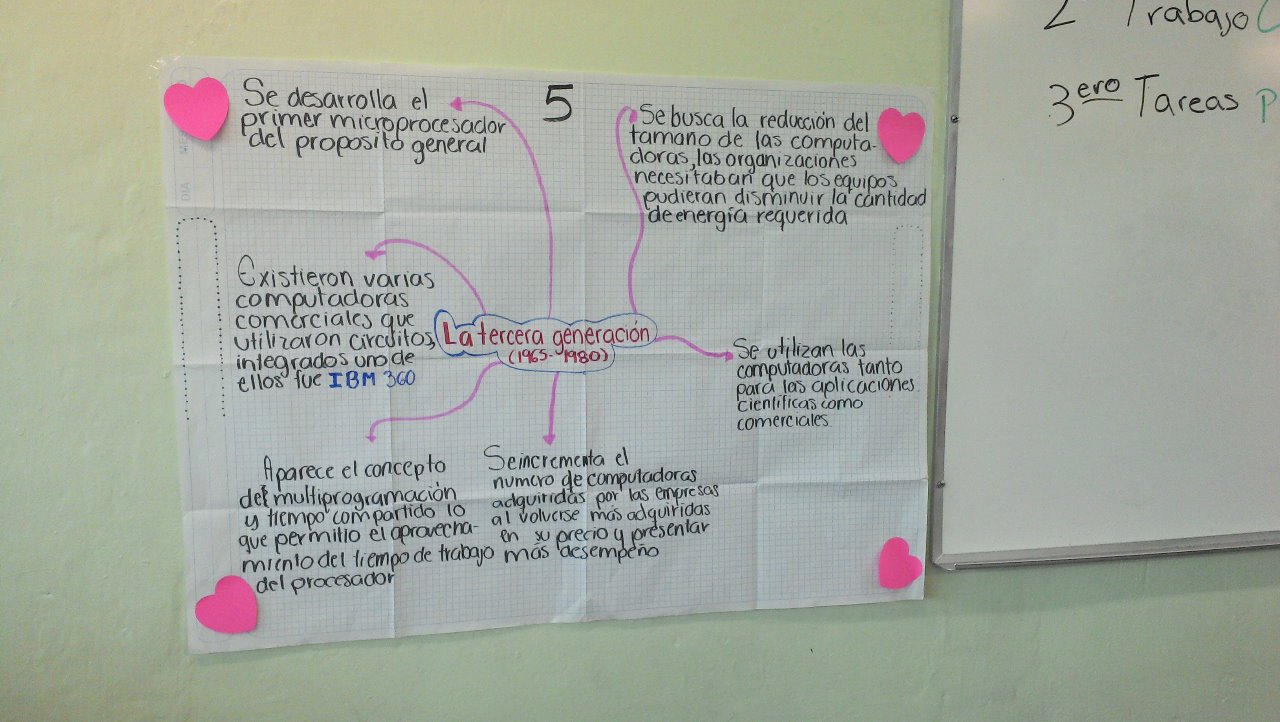 5
Se desarrolla el
primer microprocesador
del proposito general
Se busca la reducción del
tamano de las computa-
doras, las organizaciones
necesitaban que los equipos
pudieran disminuir la cantidad
de energía requerida
Existieron varias
computadoras
comerciales que
utilizaron circuitos
integrados uno de
ellos fue IBM 360
La tercera generación
(1965-1980)
Se utilizan las
computadoras tanto
para las aplicaciones
científicas como
comerciales
Aparece el concepto
del multiprogramación
y tiempo compartido lo
que permitio el aprovecha-
miento del tiempo de trabajo
del procesador
Se incrementa el
numero de computadoras
adquiridas por las empresas
al volverse más adquiridas
en su precio y presentar
más desempeño
2 Trabajo
3ero Tareas
DIA